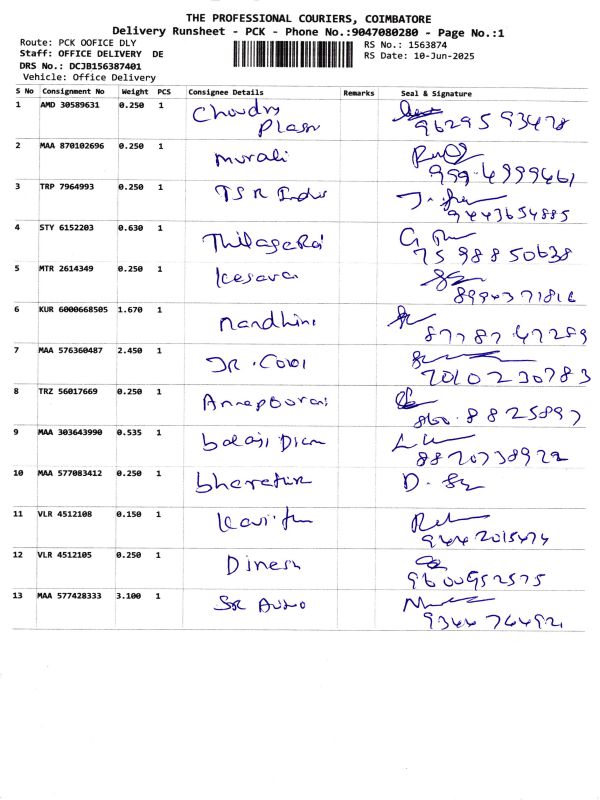 THE PROFESSIONAL COURIERS, COIMBATORE
Delivery Runsheet - PCK - Phone No.:9047080280 - Page No.:1
Route: PCK OOFICE DLY
RS No.: 1563874
Staff: OFFICE DELIVERY DE
RS Date: 10-Jun-2025
DRS No.: DCJB156387401
Vehicle: Office Delivery
S No Consignment No Weight PCS Consignee Details Remarks Seal & Signature
1 AMD 30589631 0.250 1
96295 93478
2 MAA 870102696 0.250 1 murali
959.4999461
3 TRP 7964993 0.250 1 TSR India
9443654885
4 STY 6152203 0.630 1
75 98850638
5 MTR 2614349 0.250 1 Kesava
8994371816
6 KUR 6000668505 1.670 1 nandhini
87787 47289
7 MAA 576360487 2.450 1
7010230783
8 TRZ 56017669 0.250 1
860.8825897
9 MAA 303643990 0.535 1 balaji
8870738922
10 MAA 577083412 0.250 1 D.
11 VLR 4512108 0.150 1
12 VLR 4512105 0.250 1 Dinesh
9600952575
13 MAA 577428333 3.100 1 SR
9344764921